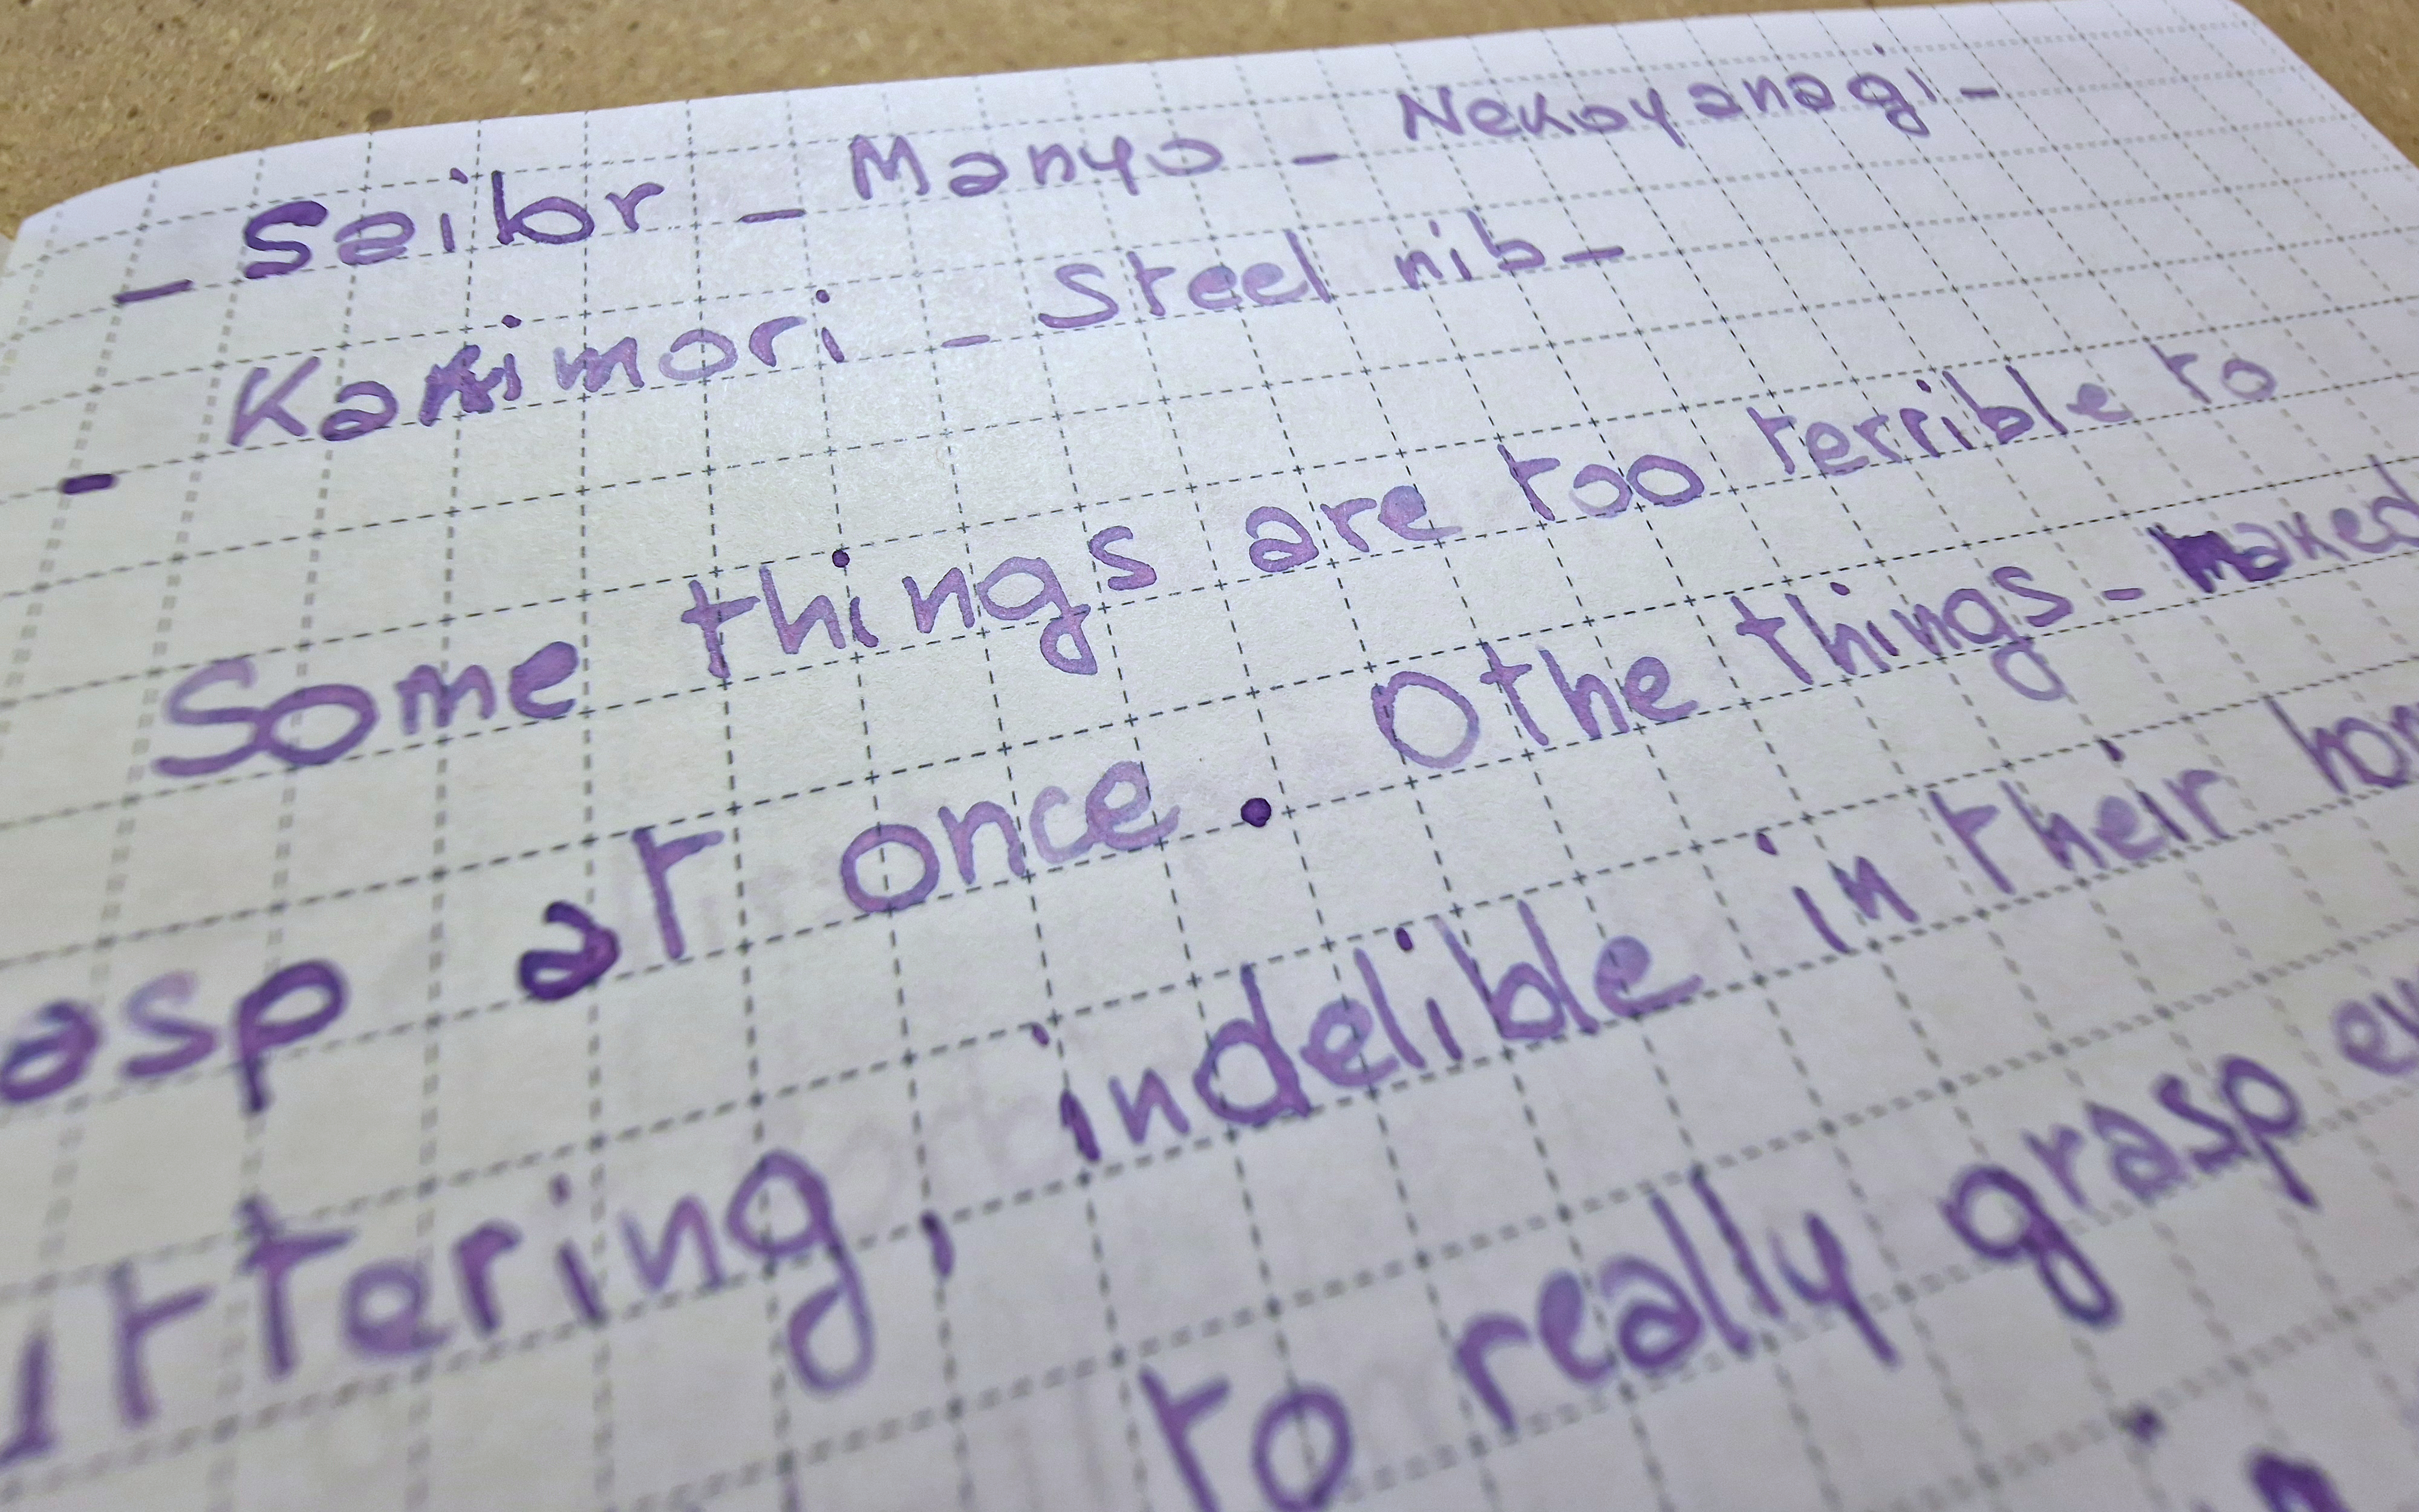 - Sailor - Manyo - Nekoyanagi -
- Kakimori - Steel nib -
Some things are too terrible to
asp at once. Othe things - naked
uttering, indelible in their hor
to really grasp ev